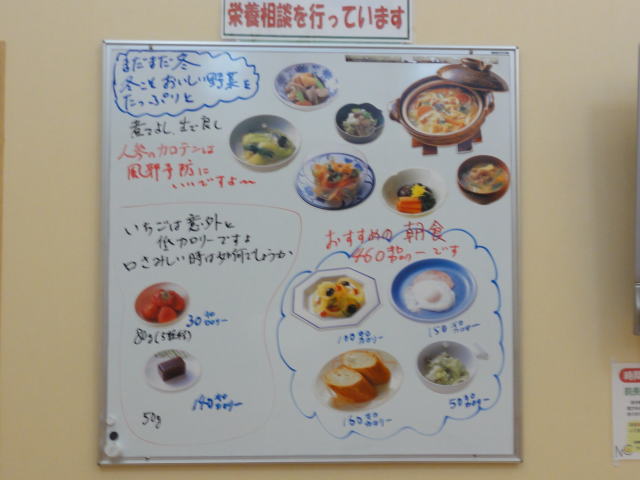 栄養相談を行っています
まだまだ冬
冬こそおいしい野菜を
たっぷりと
煮てよし、生で良し
人参のカロテンは
風邪予防に
いいですよ〜
いちごは意外と
低カロリーですよ
口さみしい時は如何でしょうか
30キロカロリー
80g(5粒位)
140キロカロリー
50g
おすすめの朝食
460キロカロリーです
100キロカロリー
150キロカロリー
160キロカロリー
50キロカロリー